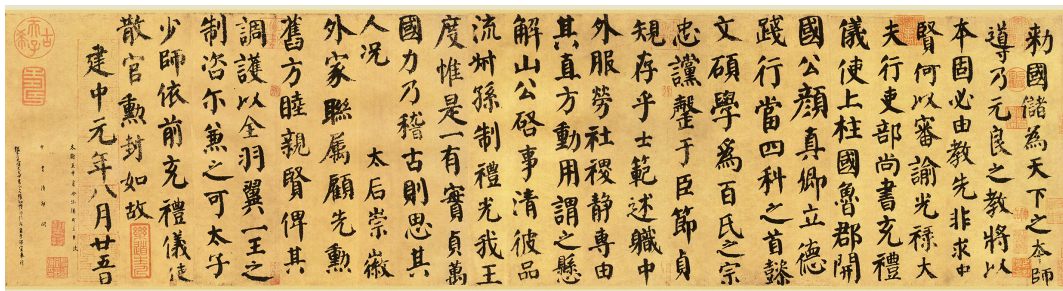 勑國儲為天下之本師
導乃元良之教將以
本固必由教先非求中
賢何以審諭光祿大
夫行吏部尚書充禮
儀使上柱國魯郡開
國公顏真卿立德
踐行當四科之首懿
文碩學爲百氏之宗
忠讜罄于臣節貞
規存乎士範述職中
外服勞社稷静專由
其直方動用謂之懸
解山公啓事清彼品
流叔孫制禮光我王
度惟是一有實貞萬
國力乃稽古則思其
人況 太后崇徽
外家聯屬顧先勳
舊方睦親賢俾其
調護以全羽翼一王之
制咨尔兼之可太子
少師依前充禮儀使
散官勳封如故
建中元年八月廿五日
古希天子